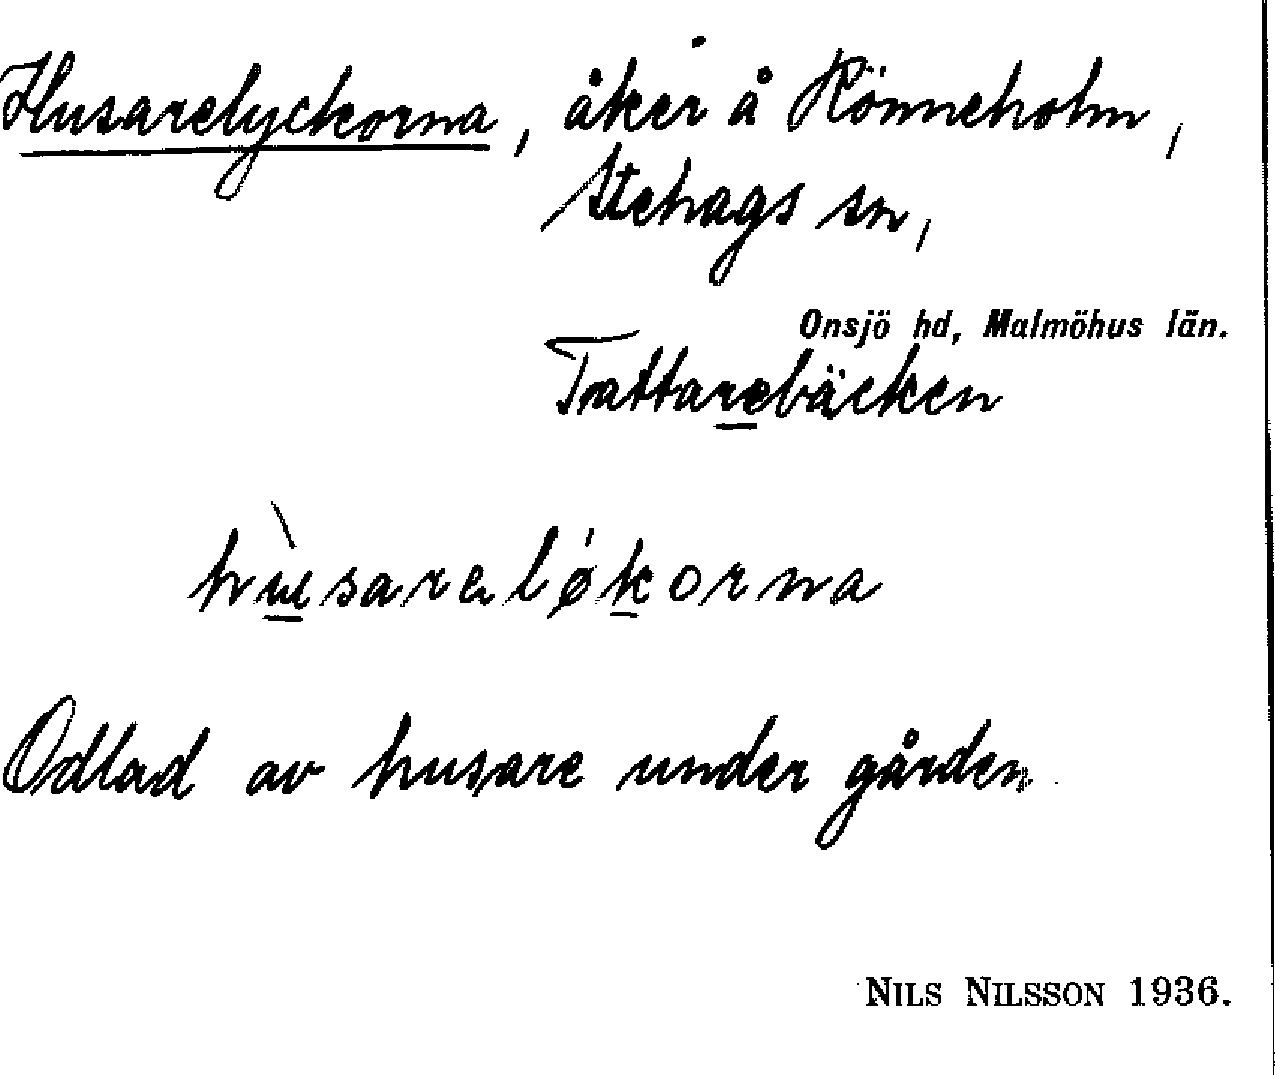 Husarelyckorna, åker å Rönneholm,
Stehags sn,
Onsjö hd, Malmöhus län.
Tattarebäcken
husareløkorna
Odlad av husare under gården.
NILS NILSSON 1936.